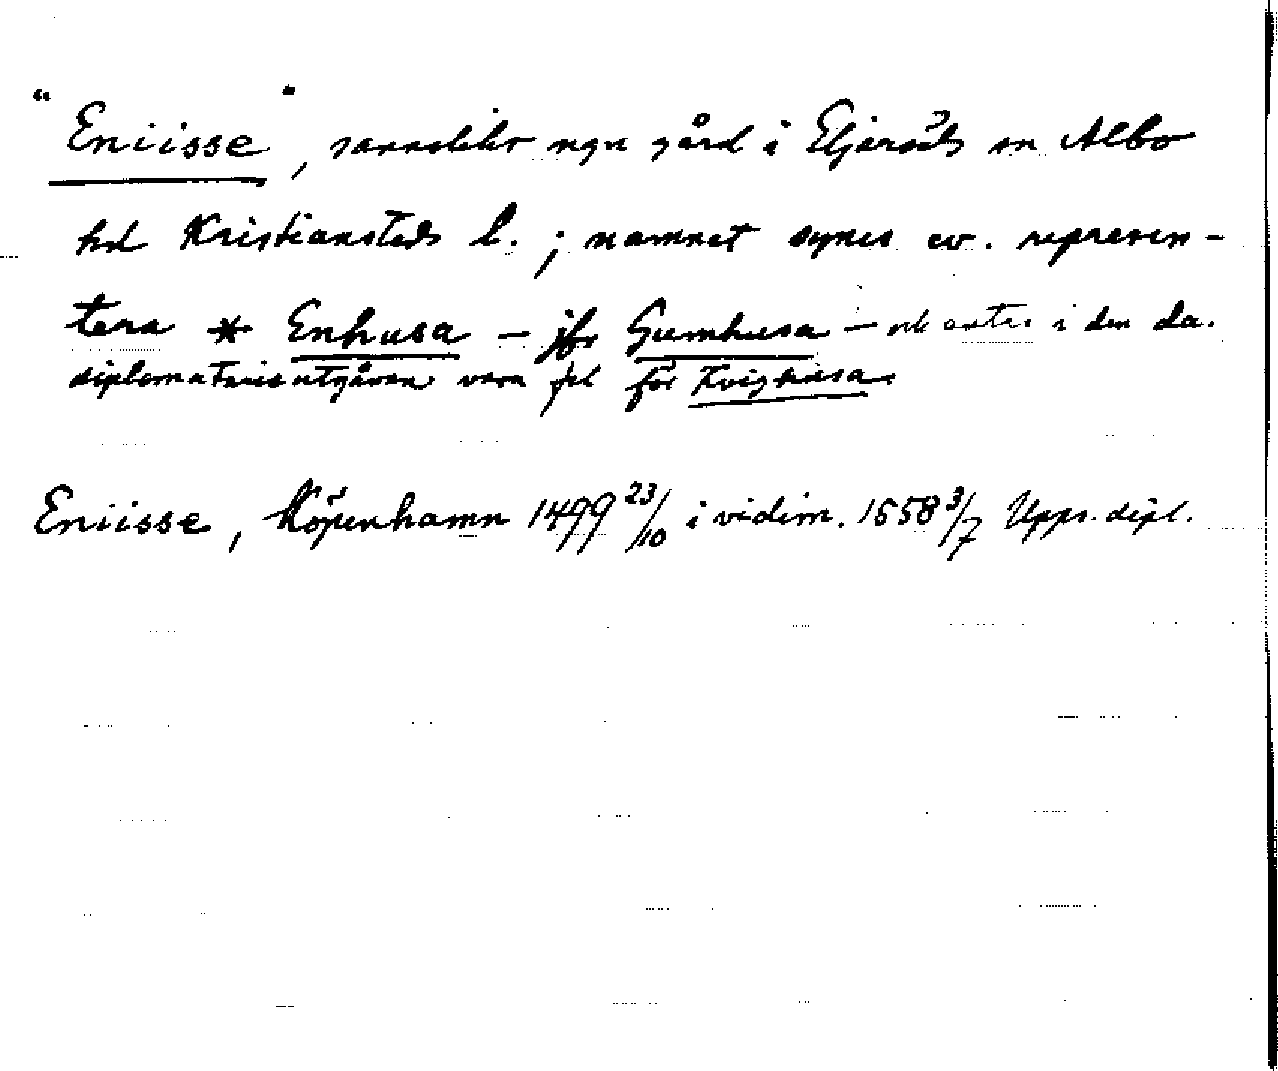 "Eniisse", sannolikt ngn gård i Eljaröds sn Albo
hd Kristianstads l.; namnet synes ev. represen-
tera * Enhusa – jfr Gumhusa – och antas i den da.
diplomatarieutgåvan vara fel för Kvighusa.
Eniisse, Köpenhamn 1499 23/10 i vidim. 1558 3/7 Upps. dipl.